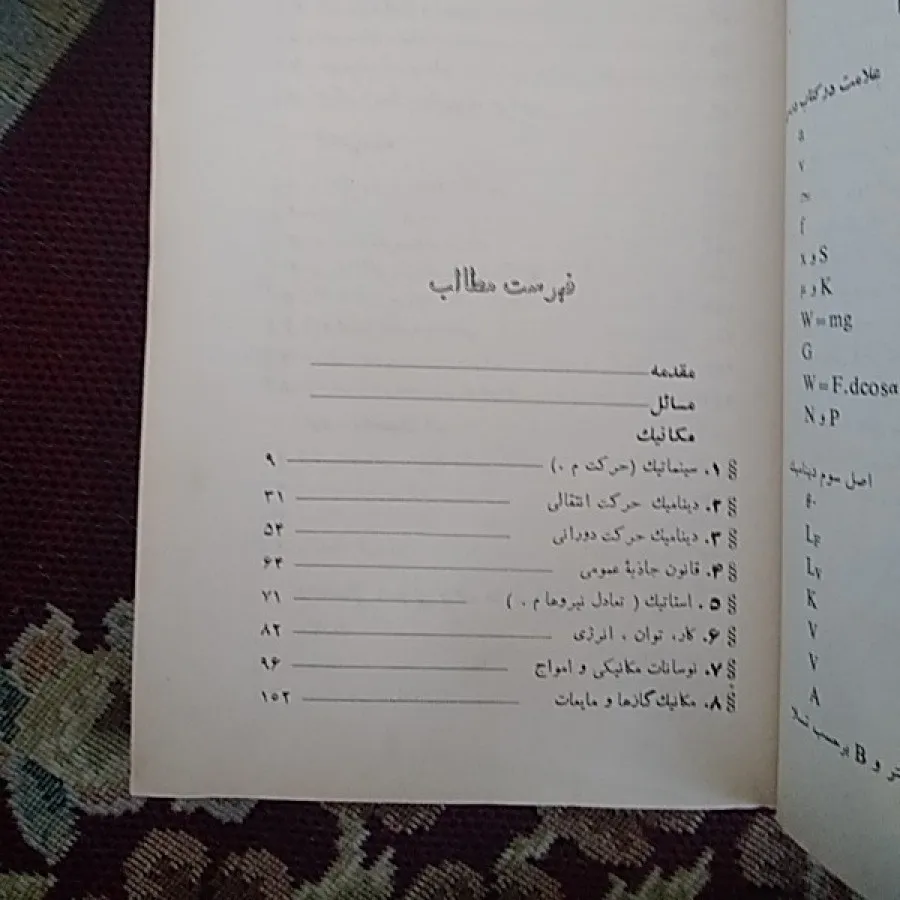 فهرست مطالب
مقدمه
مسائل
مکانیک
§ ۱. سینماتیک (حرکت م .) ۹
§ ۲. دینامیک حرکت انتقالی ۳۱
§ ۳. دینامیک حرکت دورانی ۵۴
§ ۴. قانون جاذبهٔ عمومی ۶۴
§ ۵. استاتیک ( تعادل نیروها م . ) ۷۱
§ ۶. کار، توان ، انرژی ۸۲
§ ۷. نوسانات مکانیکی و امواج ۹۶
§ ۸. مکانیک گازها و مایعات ۱۵۲
علامت در کتاب
v
f
S و x
K و μ
W=mg
G
W=F.dcosα
P و N
اصل سوم دینامیک
L_F
L_V
K
V
V
A
و B برحسب تسلا